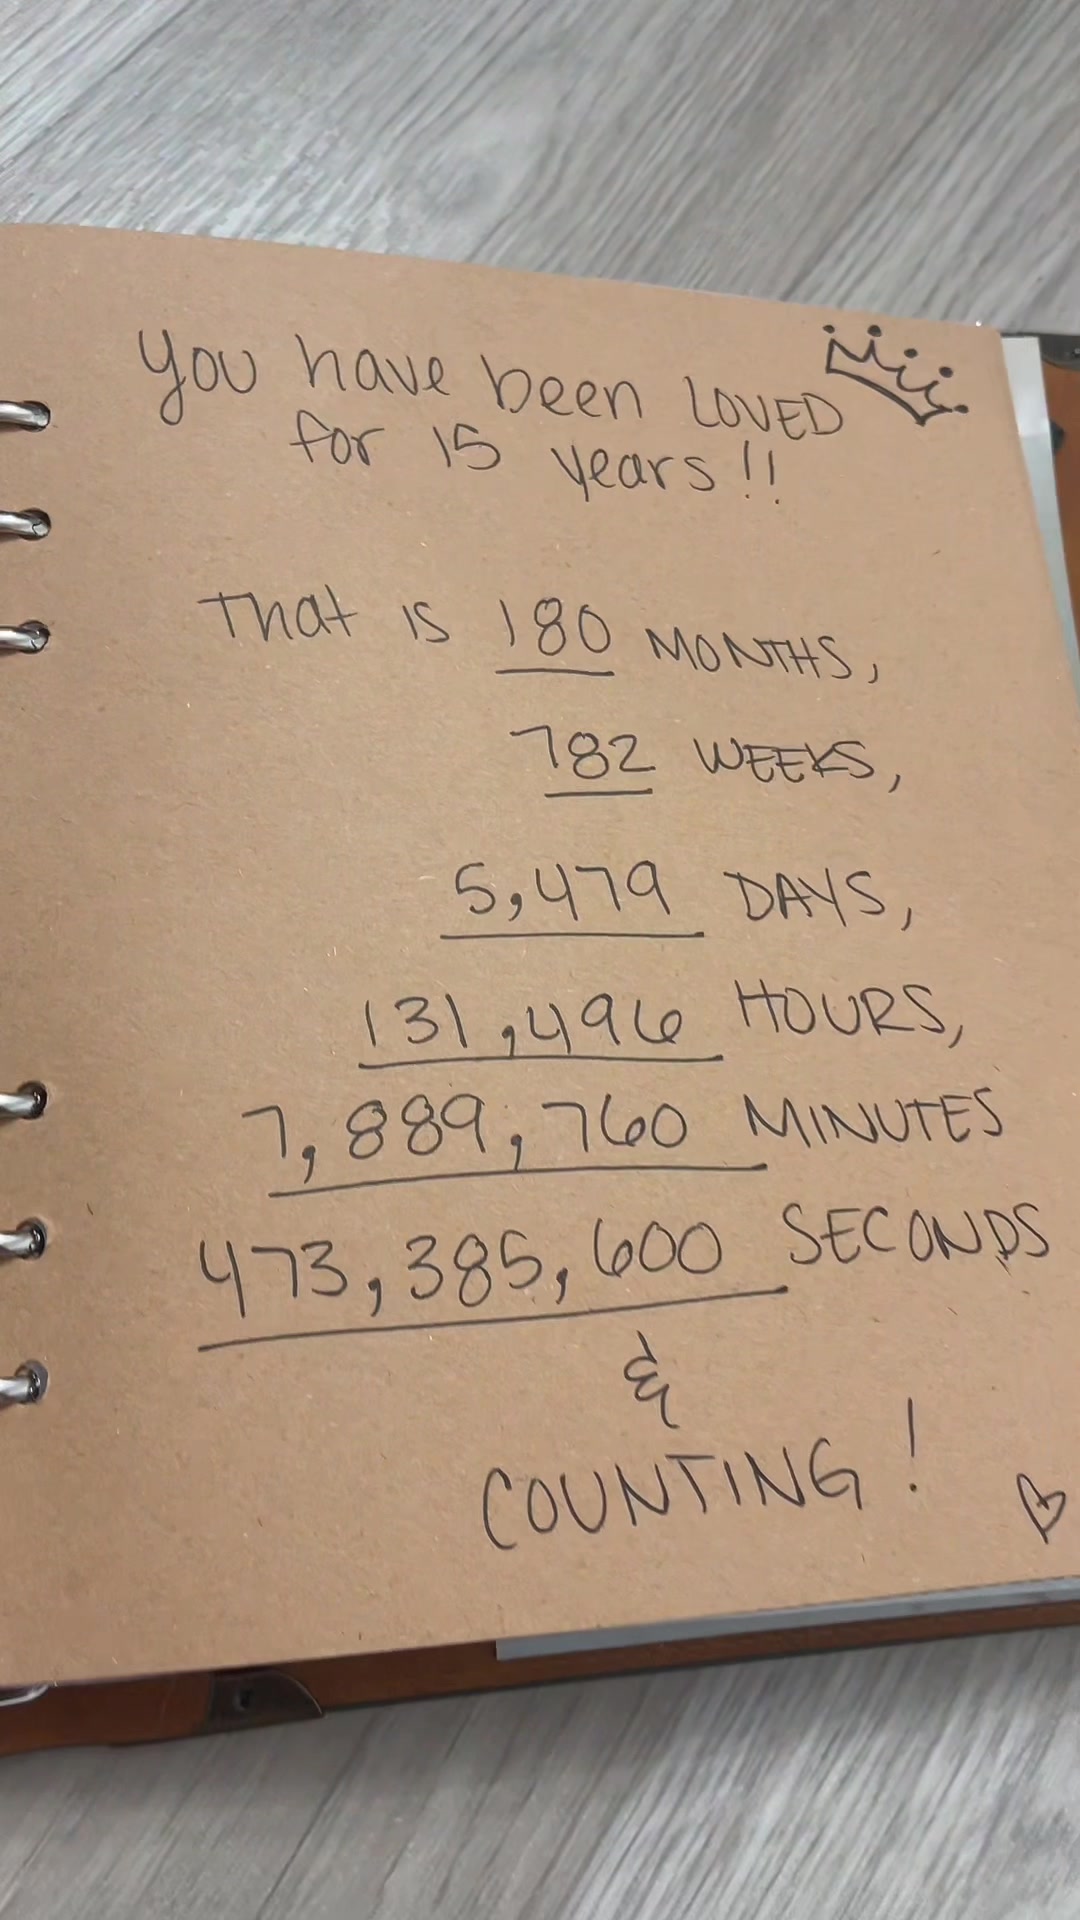 you have been LOVED
for 15 years!!
That is 180 MONTHS,
782 WEEKS,
5,479 DAYS,
131,496 HOURS,
7,889,760 MINUTES
473,385,600 SECONDS
&
COUNTING!